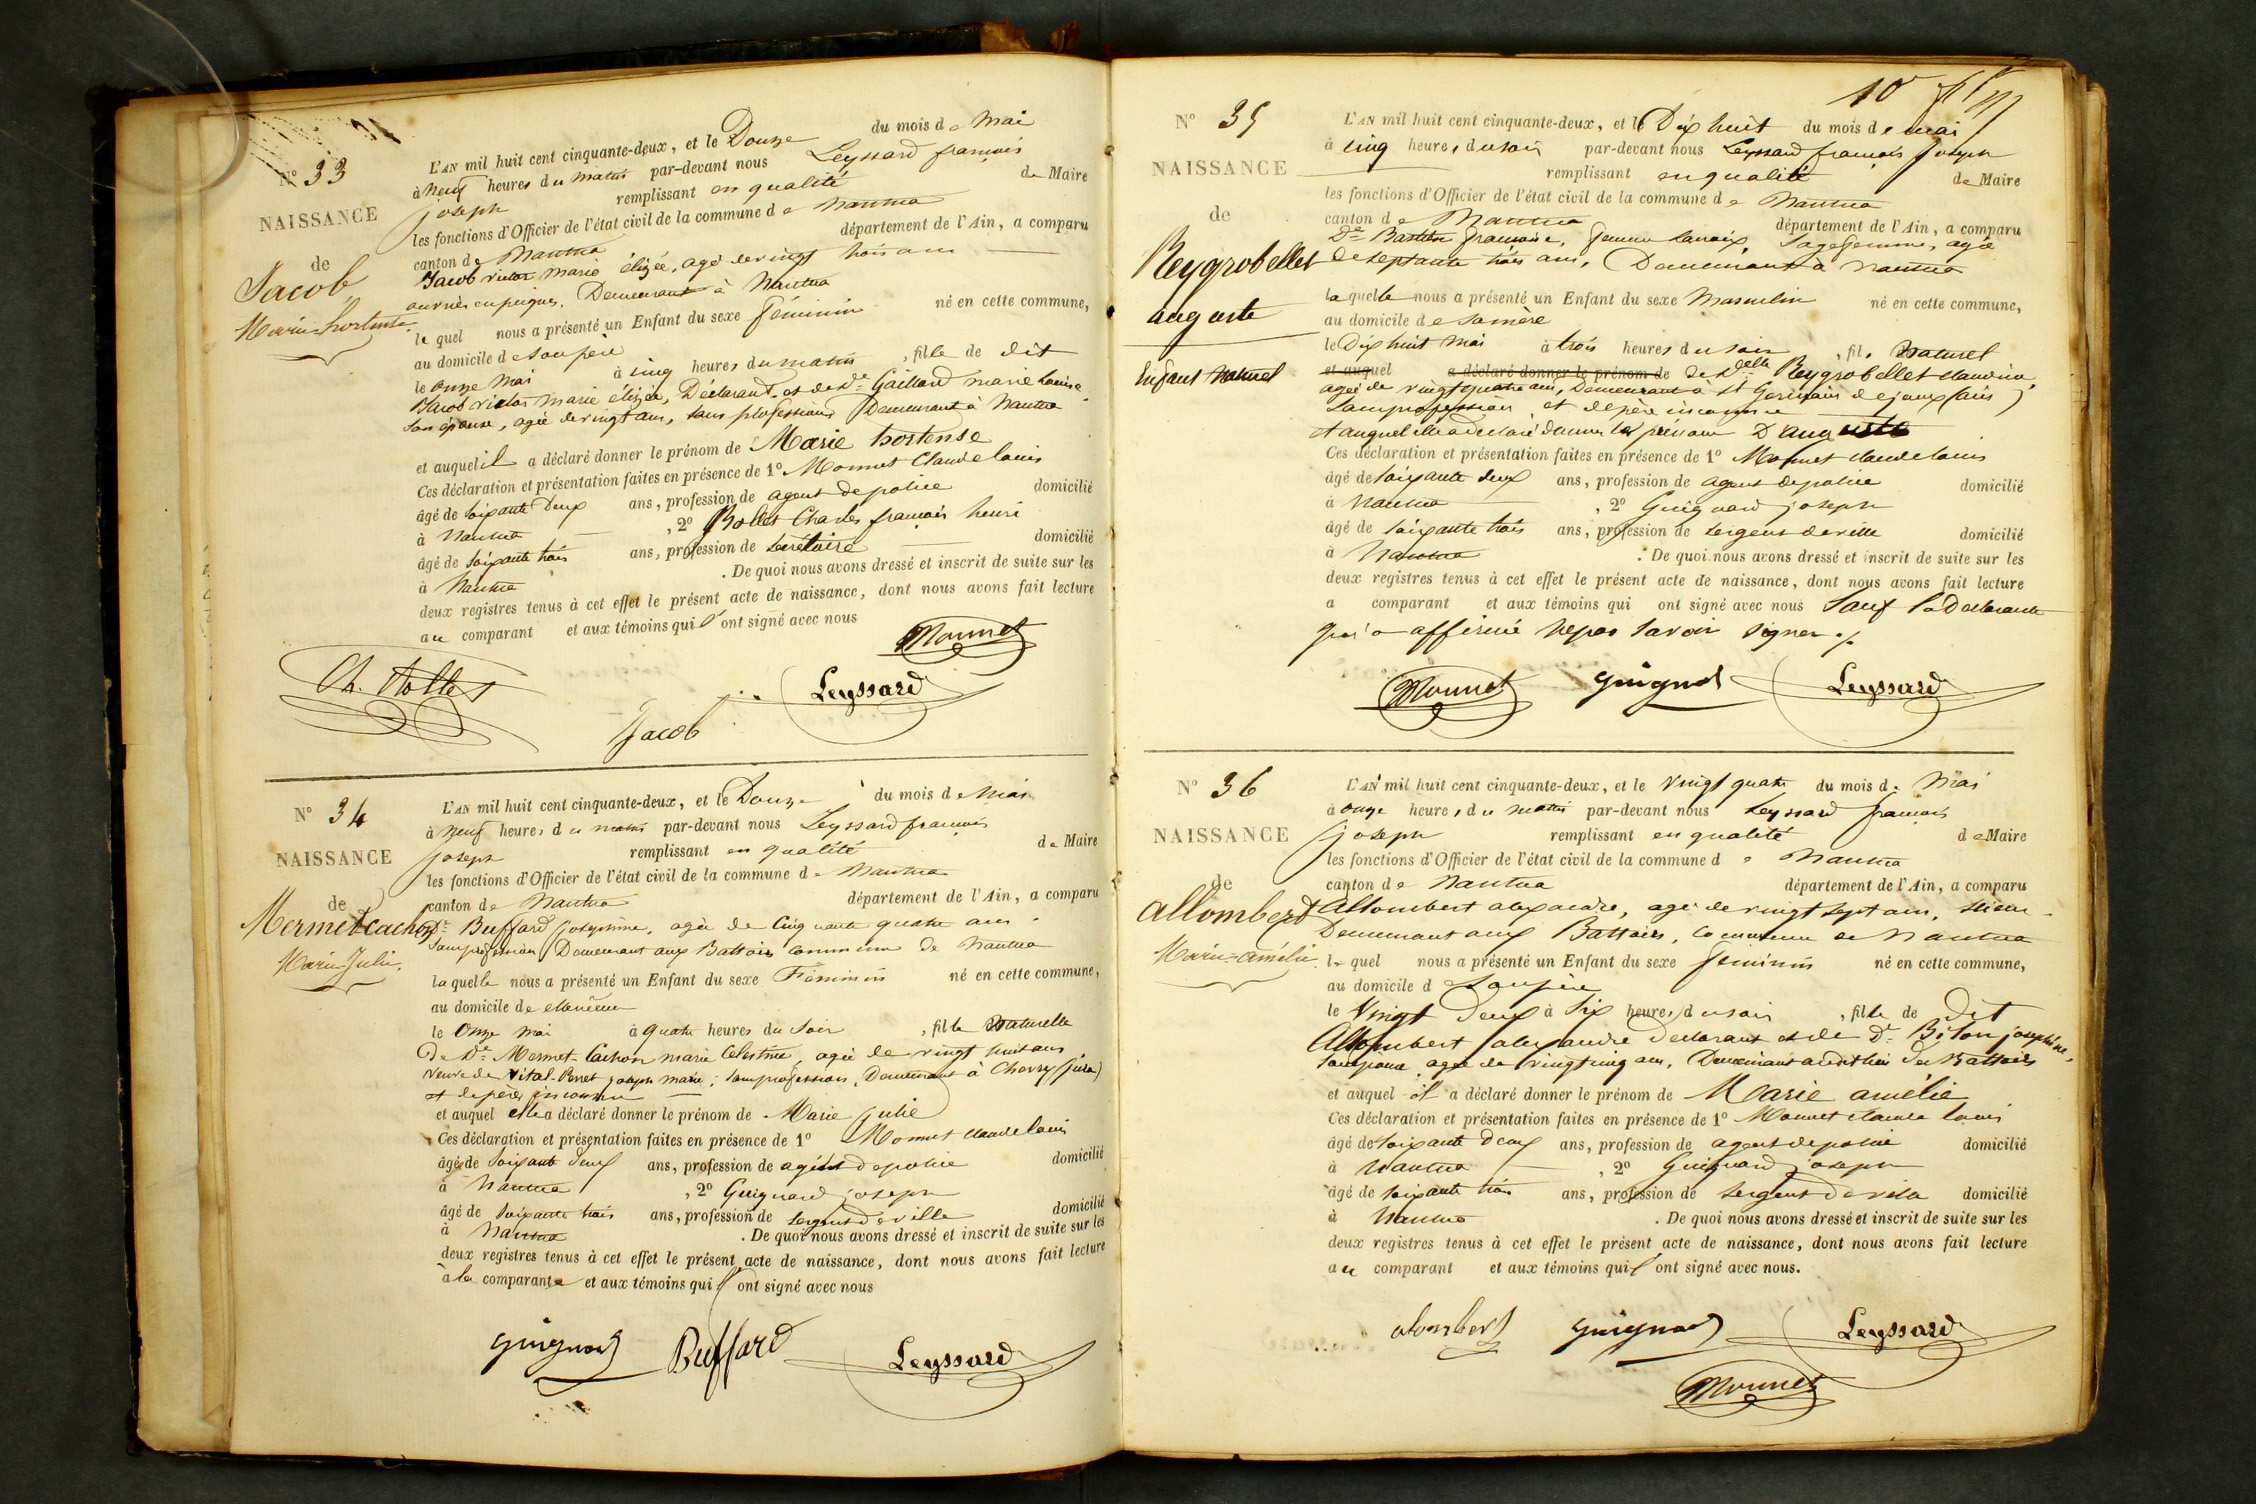 N° 33
NAISSANCE
de
Jacob
Marie-hortense
L'AN mil huit cent cinquante-deux, et le Douze du mois de Mai
à Neuf heures du matin par-devant nous Leyssard françois
joseph remplissant en qualité de Maire
les fonctions d'Officier de l'état civil de la commune de Nantua
canton de Nantua département de l'Ain, a comparu
Jacob victor marie élizée, agé de vingt trois ans
ouvrier en peignes, Demeurant à Nantua
le quel nous a présenté un Enfant du sexe féminin né en cette commune,
au domicile de son père
le onze Mai à cinq heures du matin, fille de dit
Jacob victor marie élizée, Déclarant, et de De Gaillard marie Louise
son épouse, agée de vingt ans, sans profession Demeurant à Nantua
et auquel il a déclaré donner le prénom de Marie hortense
Ces déclaration et présentation faites en présence de 1° Monnet Claude louis
âgé de soixante Deux ans, profession de agent de police domicilié
à Nantua, 2° Rollet Charles françois henri
âgé de soixante trois ans, profession de secrétaire domicilié
à Nantua. De quoi nous avons dressé et inscrit de suite sur les
deux registres tenus à cet effet le présent acte de naissance, dont nous avons fait lecture
au comparant et aux témoins qui ont signé avec nous
Monnet
Ch. Rollet
Leyssard
Jacob
N° 34
NAISSANCE
de
Mermet Cachon
Marie-Julie.
L'AN mil huit cent cinquante-deux, et le Douze du mois de Mai
à Neuf heures du matin par-devant nous Leyssard françois
joseph remplissant en qualité de Maire
les fonctions d'Officier de l'état civil de la commune de Nantua
canton de Nantua département de l'Ain, a comparu
De Buffard josephine, agée de Cinquante quatre ans
sans profession Demeurant aux Battoirs commune de Nantua
laquelle nous a présenté un Enfant du sexe Féminin né en cette commune,
au domicile de
le Onze mai à quatre heures du soir, fille Naturelle
De De Mermet-Cachon marie Celestine, agée de vingt huit ans
veuve de Vital-Perret joseph marie, sans profession, Demeurant à Choux (jura)
et de père inconnu
et auquel elle a déclaré donner le prénom de Marie julie
Ces déclaration et présentation faites en présence de 1° Monnet claude louis
âgé de soixante deux ans, profession de agent de police domicilié
à Nantua, 2° Guignard joseph
âgé de soixante trois ans, profession de sergent de ville domicilié
à Nantua. De quoi nous avons dressé et inscrit de suite sur les
deux registres tenus à cet effet le présent acte de naissance, dont nous avons fait lecture
à la comparante et aux témoins qui ont signé avec nous
guignard
Buffard
Leyssard
10
N° 35
NAISSANCE
de
Reygrobellet
auguste
Enfant Naturel
L'AN mil huit cent cinquante-deux, et le Dix huit du mois de mai
à cinq heures du soir par-devant nous Leyssard françois Joseph
remplissant en qualité de Maire
les fonctions d'Officier de l'état civil de la commune de Nantua
canton de Nantua département de l'Ain, a comparu
De Bastien françoise, femme Lacroix, sagefemme, agée
de septante trois ans, Demeurant à Nantua
laquelle nous a présenté un Enfant du sexe Masculin né en cette commune,
au domicile de sa mère
le Dix huit Mai à trois heures du soir, fils Naturel
et auquel a déclaré donner le prénom de de Delle Reygrobellet claudine
agée de vingt quatre ans, Demeurant à St Germain de joux (ain)
sans profession et de père inconnu
et auquel elle a déclaré donner le prénom D'auguste
Ces déclaration et présentation faites en présence de 1° Monnet claude louis
âgé de soixante deux ans, profession de agent de police domicilié
à Nantua, 2° Guignard joseph
âgé de soixante trois ans, profession de sergent de ville domicilié
à Nantua. De quoi nous avons dressé et inscrit de suite sur les
deux registres tenus à cet effet le présent acte de naissance, dont nous avons fait lecture
a comparant et aux témoins qui ont signé avec nous Sauf la Déclarante
qui a affirmé ne pas savoir signer ./.
Monnet
guignard
Leyssard
N° 36
NAISSANCE
de
Allombert
Marie-amélie
L'AN mil huit cent cinquante-deux, et le vingt quatre du mois de Mai
à onze heures du matin par-devant nous Leyssard françois
joseph remplissant en qualité de Maire
les fonctions d'Officier de l'état civil de la commune de Nantua
canton de Nantua département de l'Ain, a comparu
Allombert alexandre, agé de vingt sept ans, scieur
Demeurant aux Battoirs, commune de Nantua
le quel nous a présenté un Enfant du sexe féminin né en cette commune,
au domicile de son père
le Vingt Deux à Six heures du soir, fille de Dit
Allombert alexandre Déclarant et de De Biton joséphine,
son épouse agée de vingt cinq ans, Demeurant audit lieu des Battoirs
et auquel il a déclaré donner le prénom de Marie amélie
Ces déclaration et présentation faites en présence de 1° Monnet claude louis
âgé de soixante deux ans, profession de agent de police domicilié
à Nantua, 2° Guignard joseph
âgé de soixante trois ans, profession de sergent de ville domicilié
à Nantua. De quoi nous avons dressé et inscrit de suite sur les
deux registres tenus à cet effet le présent acte de naissance, dont nous avons fait lecture
au comparant et aux témoins qui ont signé avec nous.
alombert
guignard
Leyssard
Monnet